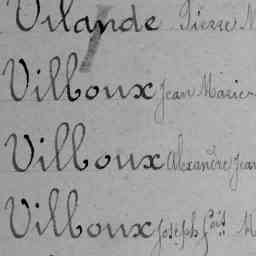 Vilande Pierre M
Villoux Jean Marie
Villoux Alexandre Jean
Villoux Joseph M